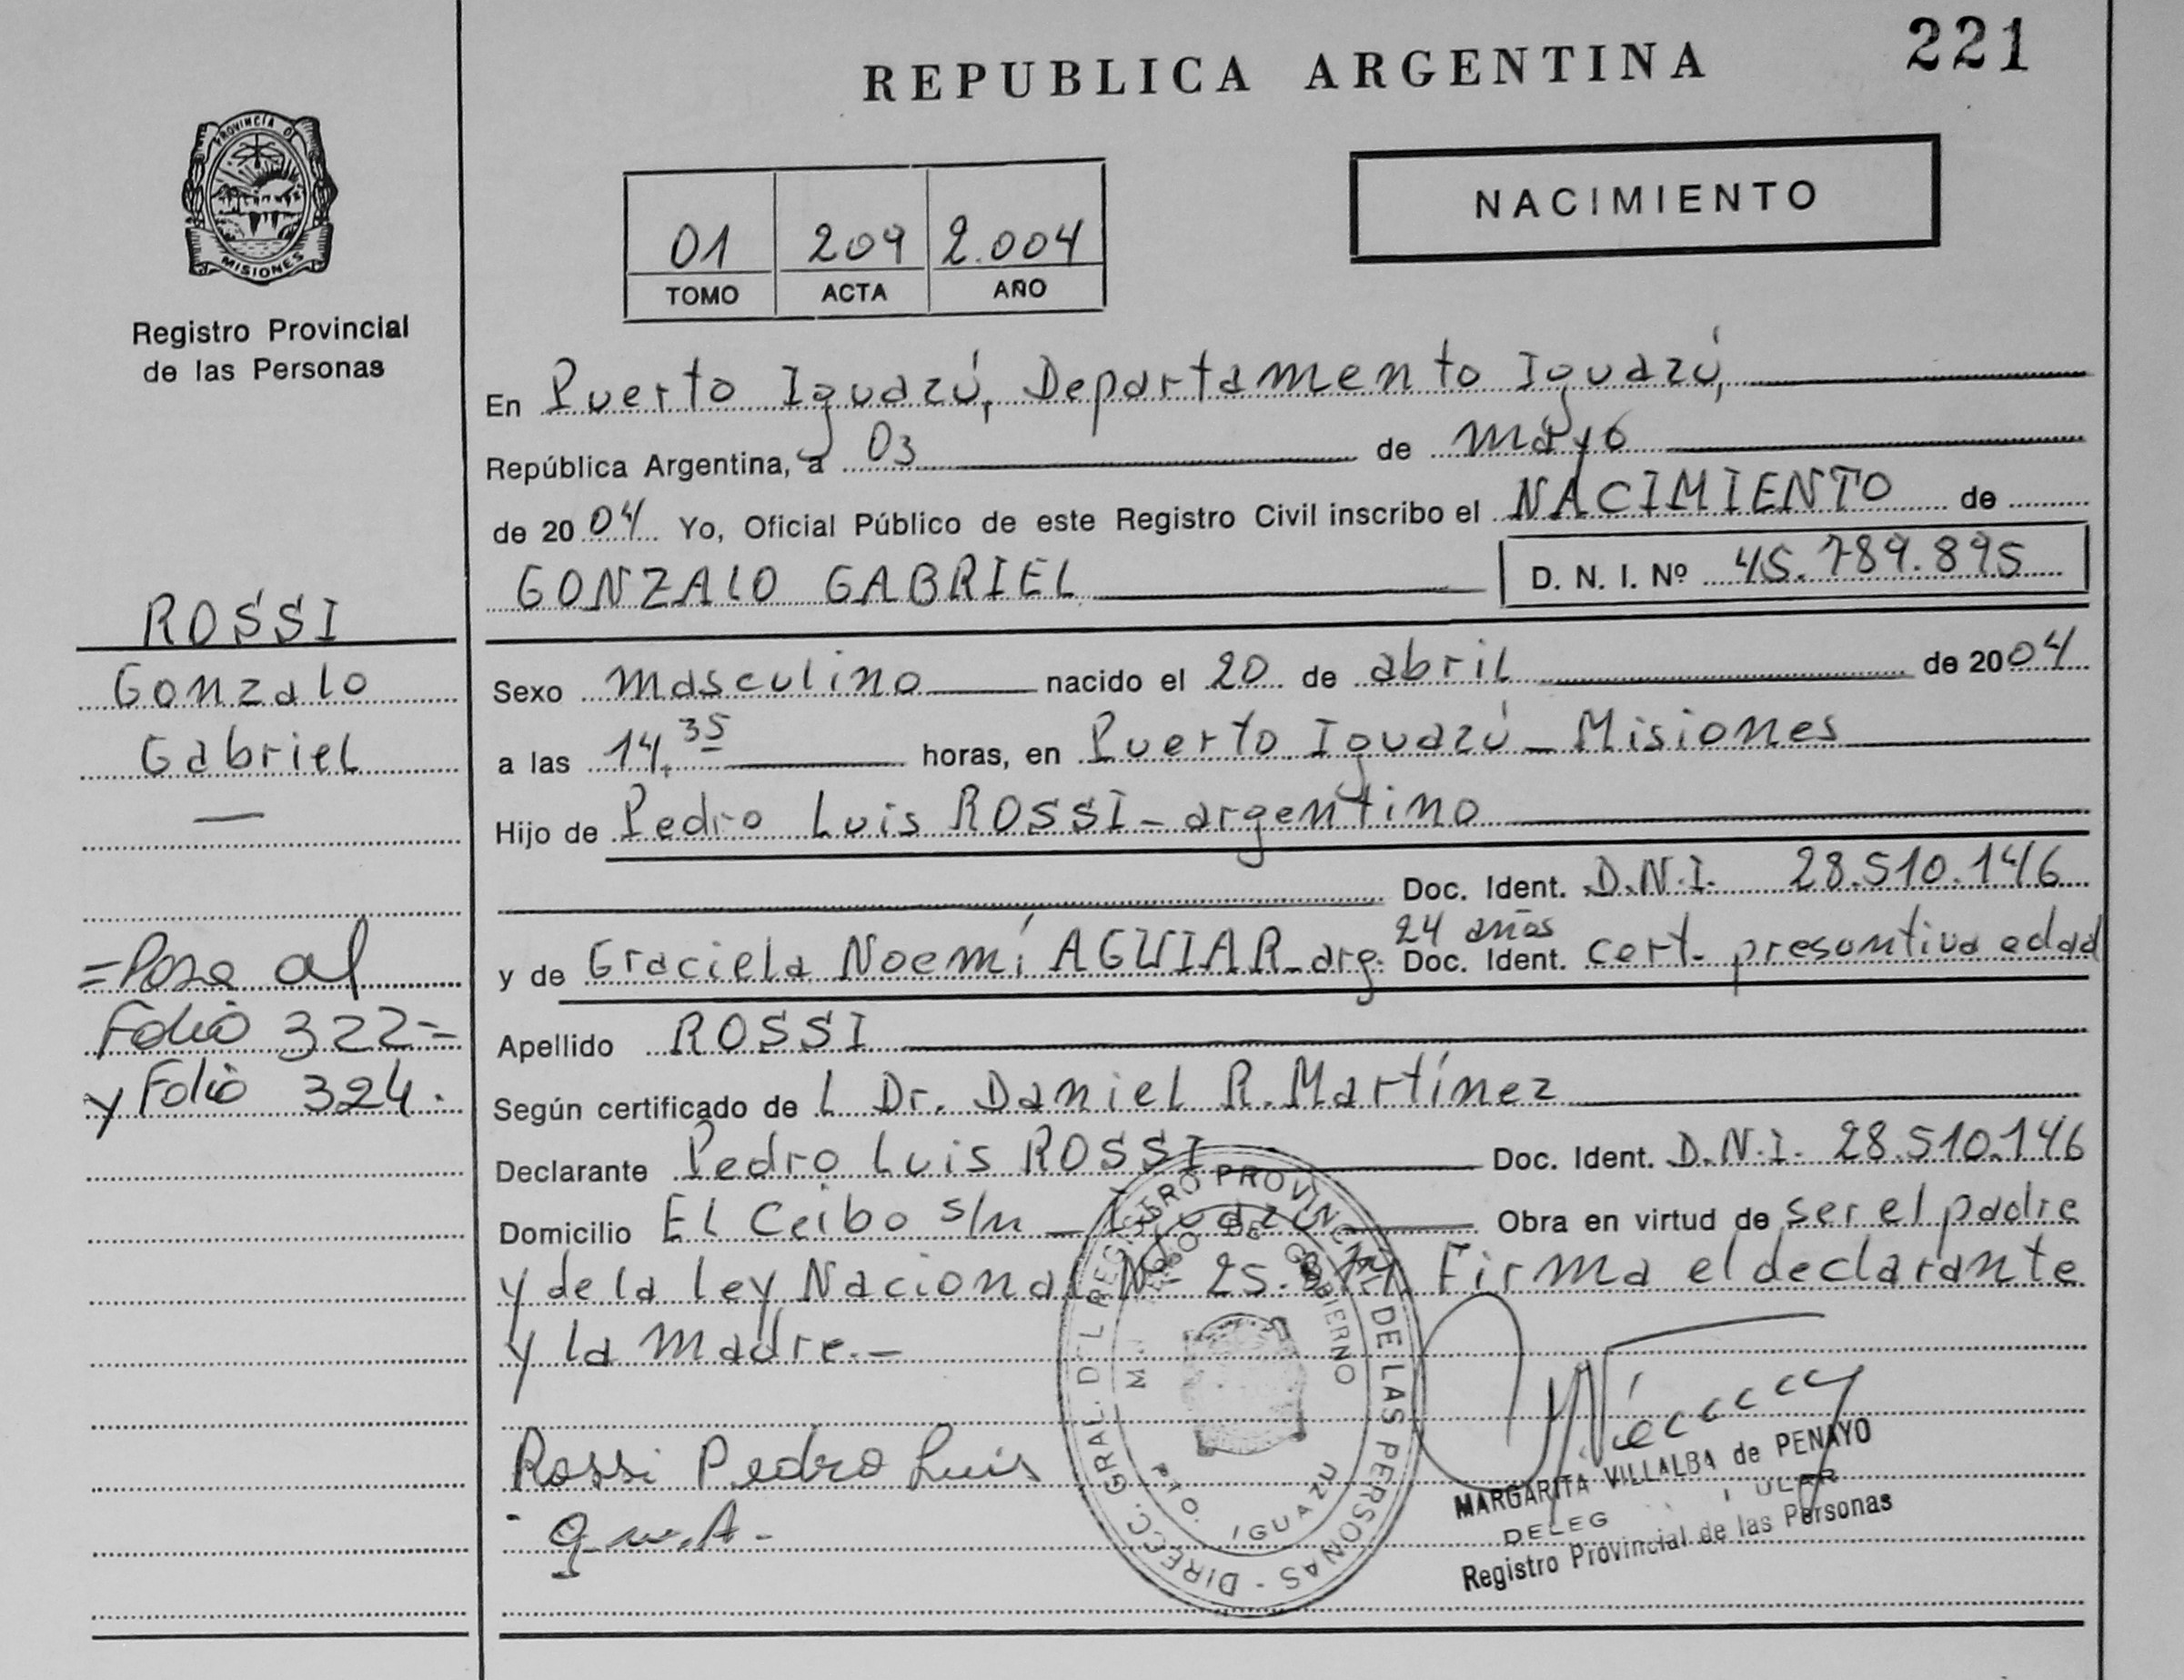 REPUBLICA ARGENTINA
221
PROVINCIA D
MISIONES
Registro Provincial
de las Personas
NACIMIENTO
01 209 2.004
TOMO ACTA AÑO
En Puerto Iguazú, Departamento Iguazú,
República Argentina, a 03 de mayo
de 2004 Yo, Oficial Público de este Registro Civil inscribo el NACIMIENTO de
GONZALO GABRIEL D. N. I. Nº 45.789.895
ROSSI
Gonzalo
Gabriel
Sexo masculino nacido el 20 de abril de 2004
a las 14.35 horas, en Puerto Iguazú - Misiones
Hijo de Pedro Luis ROSSI - argentino
Doc. Ident. D.N.I. 28.510.146
24 años
y de Graciela Noemí AGUIAR - arg. Doc. Ident. cert. presuntiva edad
=Pase al
Folio 322=
y Folio 324.
Apellido ROSSI
Según certificado de l Dr. Daniel R. Martínez
Declarante Pedro Luis ROSSI Doc. Ident. D.N.I. 28.510.146
Domicilio El Ceibo s/n - Iguazú Obra en virtud de ser el padre
y de la ley Nacional Nº 25. Firma el declarante
y la madre.-
Rossi Pedro Luis
DIRECC. GRAL. DEL REGISTRO PROVINCIAL DE LAS PERSONAS -
DE GOBIERNO
IGUAZU
MARGARITA VILLALBA de PENAYO
DELEG
Registro Provincial de las Personas